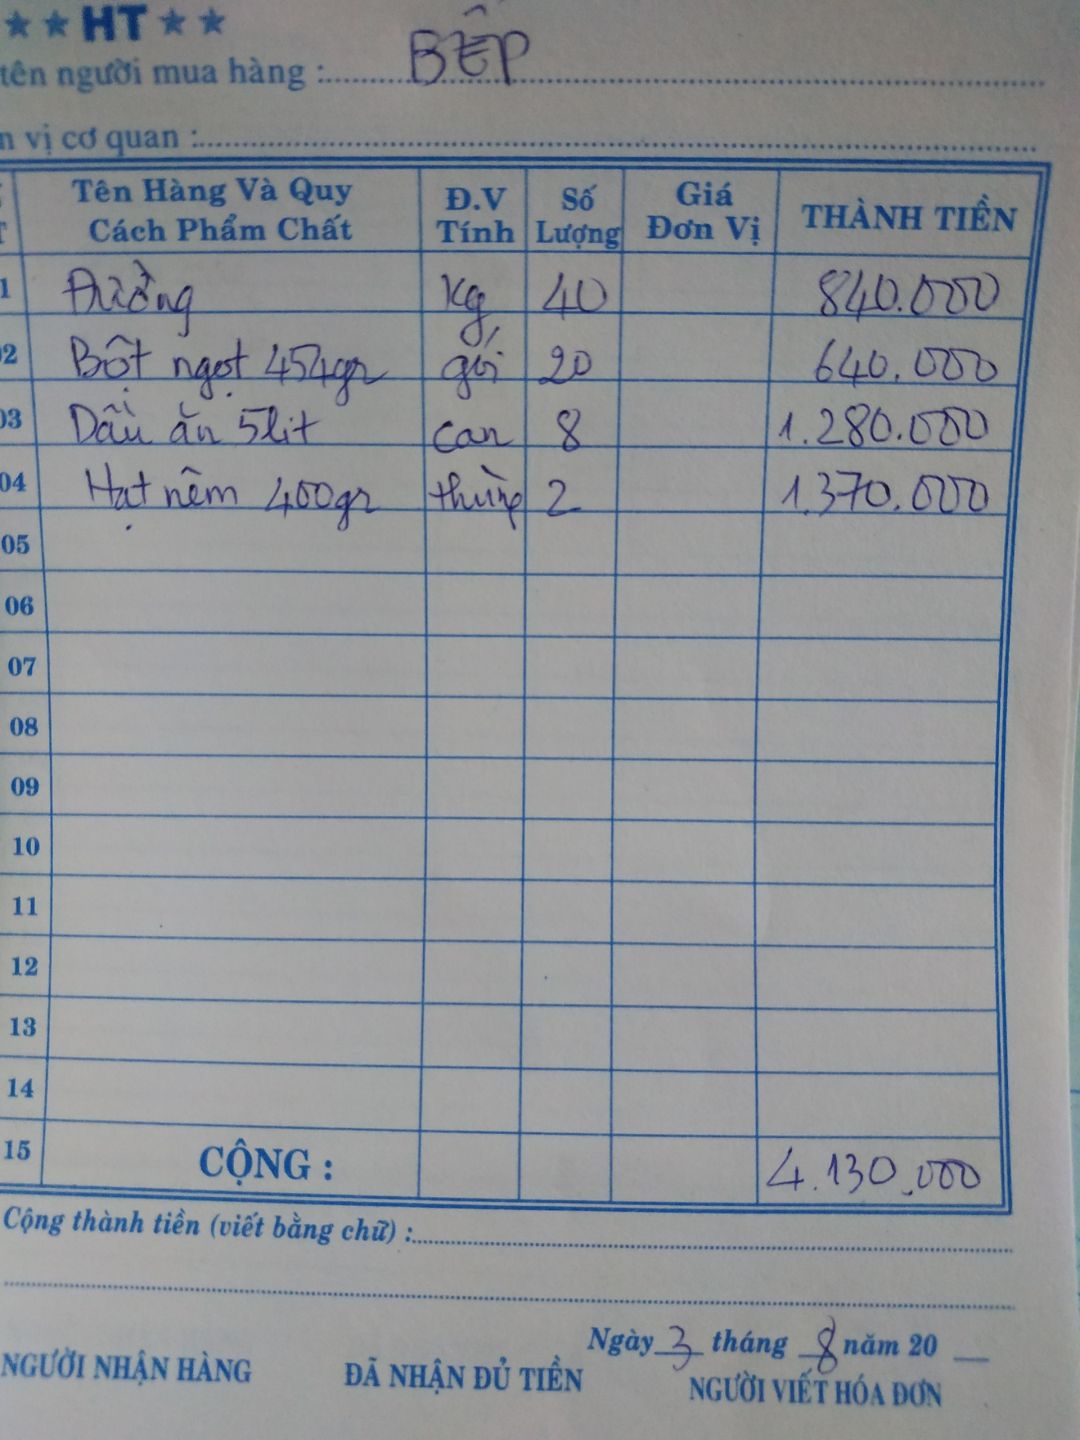 ★ ★ HT ★ ★
tên người mua hàng : BẾP
n vị cơ quan :
Tên Hàng Và Quy Cách Phẩm Chất Đ.V Tính Số Lượng Giá Đơn Vị THÀNH TIỀN
1 Đường kg 40 840.000
02 Bột ngọt 454gr gói 20 640.000
03 Dầu ăn 5lit can 8 1.280.000
04 Hạt nêm 400gr thùng 2 1.370.000
05
06
07
08
09
10
11
12
13
14
15 CỘNG : 4.130.000
Cộng thành tiền (viết bằng chữ) :
Ngày 3 tháng 8 năm 20
NGƯỜI NHẬN HÀNG ĐÃ NHẬN ĐỦ TIỀN NGƯỜI VIẾT HÓA ĐƠN